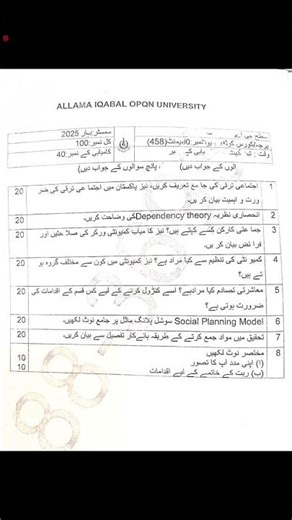 ALLAMA IQABAL OPQN UNIVERSITY
سمسٹر:بہار 2025
کل نمبر:100
کامیابی کے نمبر:40
(458)
کے جواب دیں) پانچ سوالوں کے جواب دیں)
1 اجتماعی ترقی کی جامع تعریف کریں، نیز پاکستان میں اجتماعی ترقی کی ضر 20
ورت و اہمیت بیان کر یں۔
2 انحصاری نظریہ Dependency theoryکی وضاحت کریں۔ 20
3 جما عتی کارکن کسے کہتے ہیں؟ نیز کا میاب کمیونٹی ورکر کی صلا حتیں اور 20
فرا ئض بیان کر یں۔
4 کمیو نٹی کی تنظیم سے کیا مراد ہے؟ نیز کمیونٹی میں کون سے مختلف گروہ ہو 20
تے ہیں؟
5 معاشرتی تصادم کیا مرادہے؟ اسے کنٹرول کرنے کے لیے کس قسم کے اقدامات کی 20
ضرورت ہوتی ہے؟
6 Social Planning Model سوشل پلاننگ ماڈل پر جامع نوٹ لکھیں۔ 20
7 تحقیق میں مواد جمع کرنے کے طریقہ ہائےکار تفصیل سے بیان کریں۔ 20
8 مختصر نوٹ لکھیں
(ا) اپنی مدد آپ کا تصور 10
(ب) ربت کے خاتمے کے لیے اقدامات 10